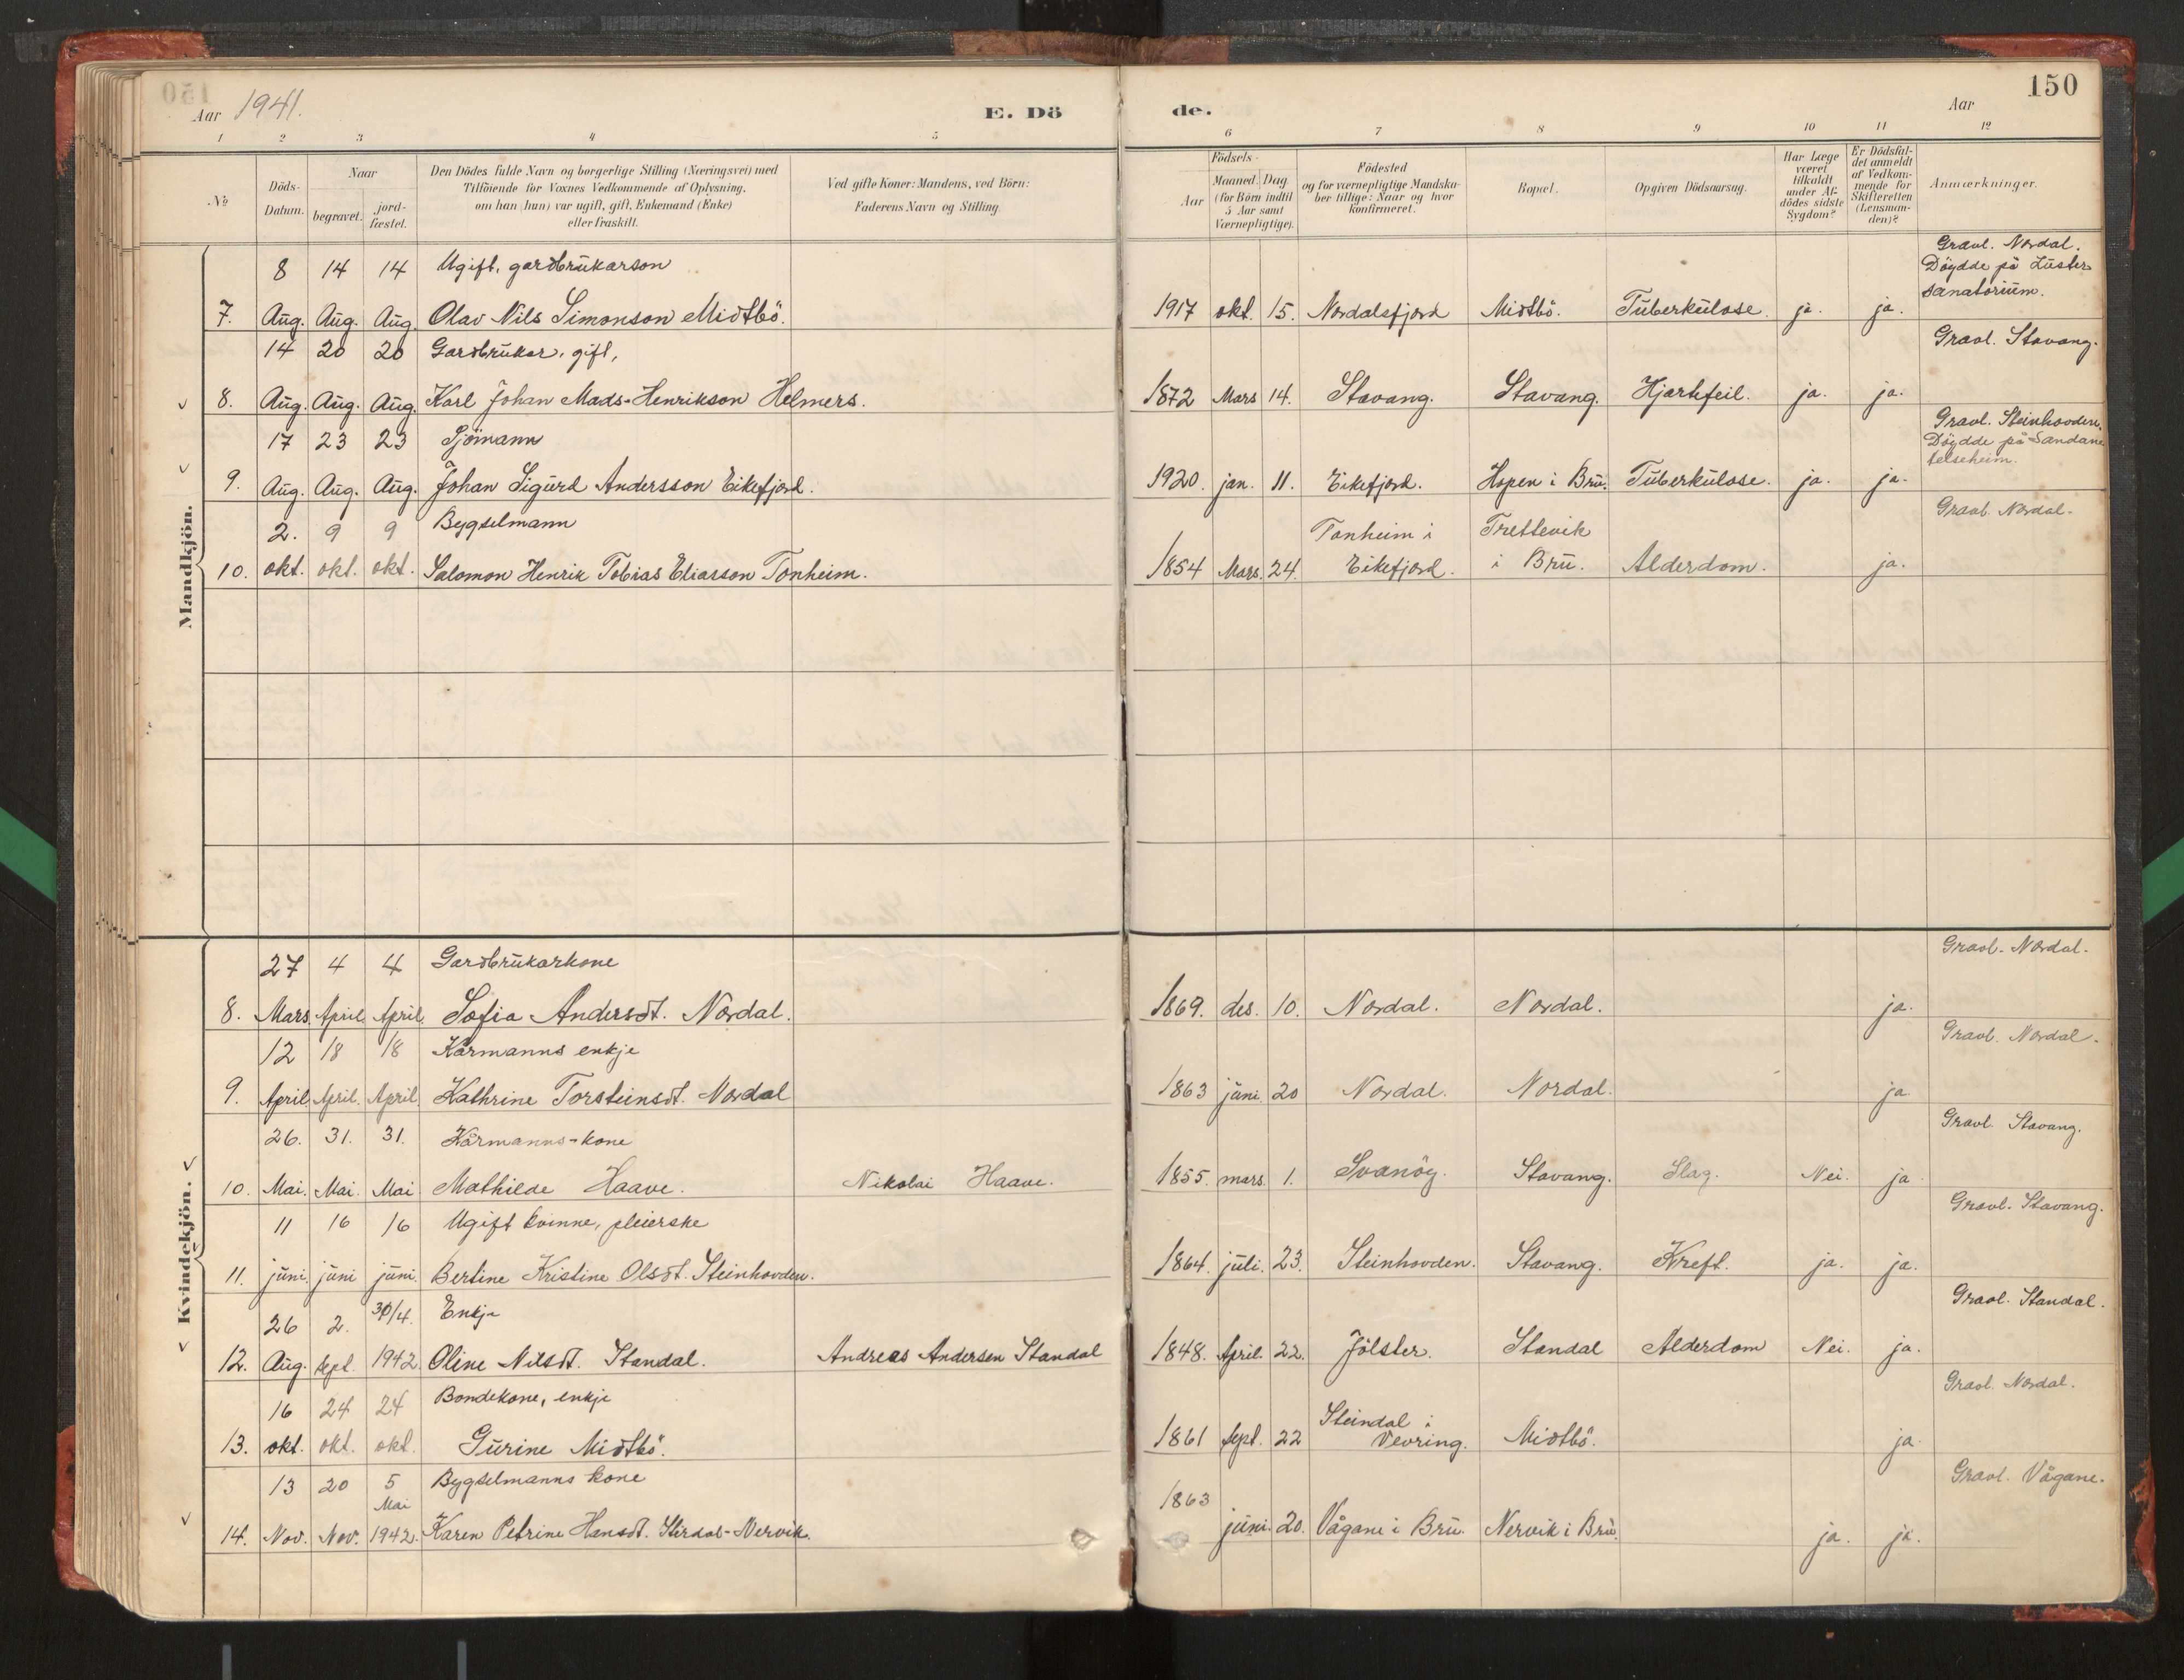 150
Aar 1941.
E. Dö de.
Aar
1 2 3 4 5 6 7 8 9 10 11 12
№
Döds-Datum.
Naar
begravet.
jord-fæstet.
Den Dödes fulde Navn og borgerlige Stilling (Næringsvei) med
Tilföiende for Voxnes Vedkommende af Oplysning,
om han (hun) var ugift, gift, Enkemand (Enke)
eller fraskilt.
Ved gifte Koner: Mandens, ved Börn:
Faderens Navn og Stilling.
Födsels-
Aar
Maaned. Dag
(for Börn indtil
5 Aar samt
Værnepligtige).
Födested
og for værnepligtige Mandska-
ber tillige: Naar og hvor
konfirmeret.
Bopæl.
Opgiven Dödsaarsag.
Har Læge
været
tilkaldt
under Af-
dödes sidste
Sygdom?
Er Dödsfal-
det anmeldt
af Vedkom-
mende for
Skifteretten
(Lensman-
den)?
Anmærkninger.
Mandkjön.
8 14 14 Ugift, gardbrukarson Gravl. Nordal.
Döydde på Luster
sanatorium.
7. Aug. Aug. Aug. Olav Nils Simonson Midtbö. 1917 okt. 15. Nordalsfjord Midtbö. Tuberkulose. ja. ja.
14 20 20 Gardbrukar, gift, Gravl. Stavang.
8. Aug. Aug. Aug. Karl Johan Mads-Henrikson Helmers. 1872 Mars 14. Stavang. Stavang. Hjartefeil. ja. ja.
17 23 23 Sjömann Gravl. Steinhovden.
Döydde på Sandane
helseheim.
9. Aug. Aug. Aug. Johan Sigurd Andersson Eikefjord. 1920. jan. 11. Eikefjord. Hopen i Bru. Tuberkulose. ja. ja.
2. 9 9 Bygselmann Tonheim i Trettevik Gravl. Nordal.
10. okt. okt. okt. Salomon Henrik Tobias Eliasson Tonheim. 1854 Mars. 24. Eikefjord. i Bru. Alderdom. ja.
Kvindekjön.
27 4 4 Gardbrukarkone Gravl. Nordal.
8. Mars. April April. Sofia Andersdt. Nordal. 1869. des. 10. Nordal. Nordal. ja.
12 18 18 Kårmanns enkje Gravl. Nordal.
9. April. April. April Kathrine Torsteinsdt. Nordal 1863 juni. 20 Nordal. Nordal. ja.
26. 31. 31. Kårmanns-kone Gravl. Stavang.
10. Mai. Mai. Mai Mathilde Haave. Nikolai Haave. 1855. mars. 1. Svanöy. Stavang. Slag. Nei. ja
11 16 16 Ugift kvinne, pleierske Gravl. Stavang.
11. juni. juni juni. Bertine Kristine Olsdt. Steinhovden. 1864. juli. 23. Steinhovden. Stavang. Kreft. ja. ja.
26 2. 30/4. Enkje Gravl. Standal.
12. Aug. sept. 1942 Oline Nilsdt. Standal. Andreas Andersen Standal 1848. April. 22. Jölster. Standal Alderdom Nei. ja.
16 24 24 Bondekone, enkje Steindal i Gravl. Nordal.
13. okt. okt. okt. Gurine Midtbö. 1861 sept. 22 Vevring. Midtbö. ja
13 20 5 Bygselmanns kone 1863 Gravl. Vågane.
Mai
14. Nov. Nov. 1942. Karen Petrine Hansdt. Nervik. juni. 20. Vågane i Bru. Nervik i Bru. ja. ja.